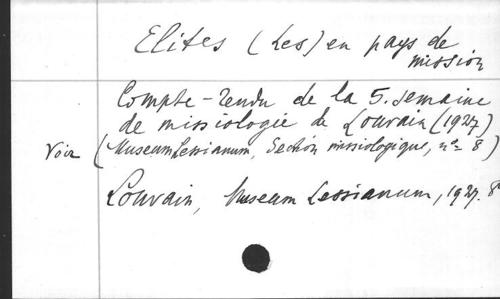 Elites (Les) en pays de
mission
Compte-rendu de la 5. semaine
de missiologie de Louvain (1927)
Voir (Museum Lessianum, Section missiologique, n° 8)
Louvain, Museum Lessianum, 1927. 8°